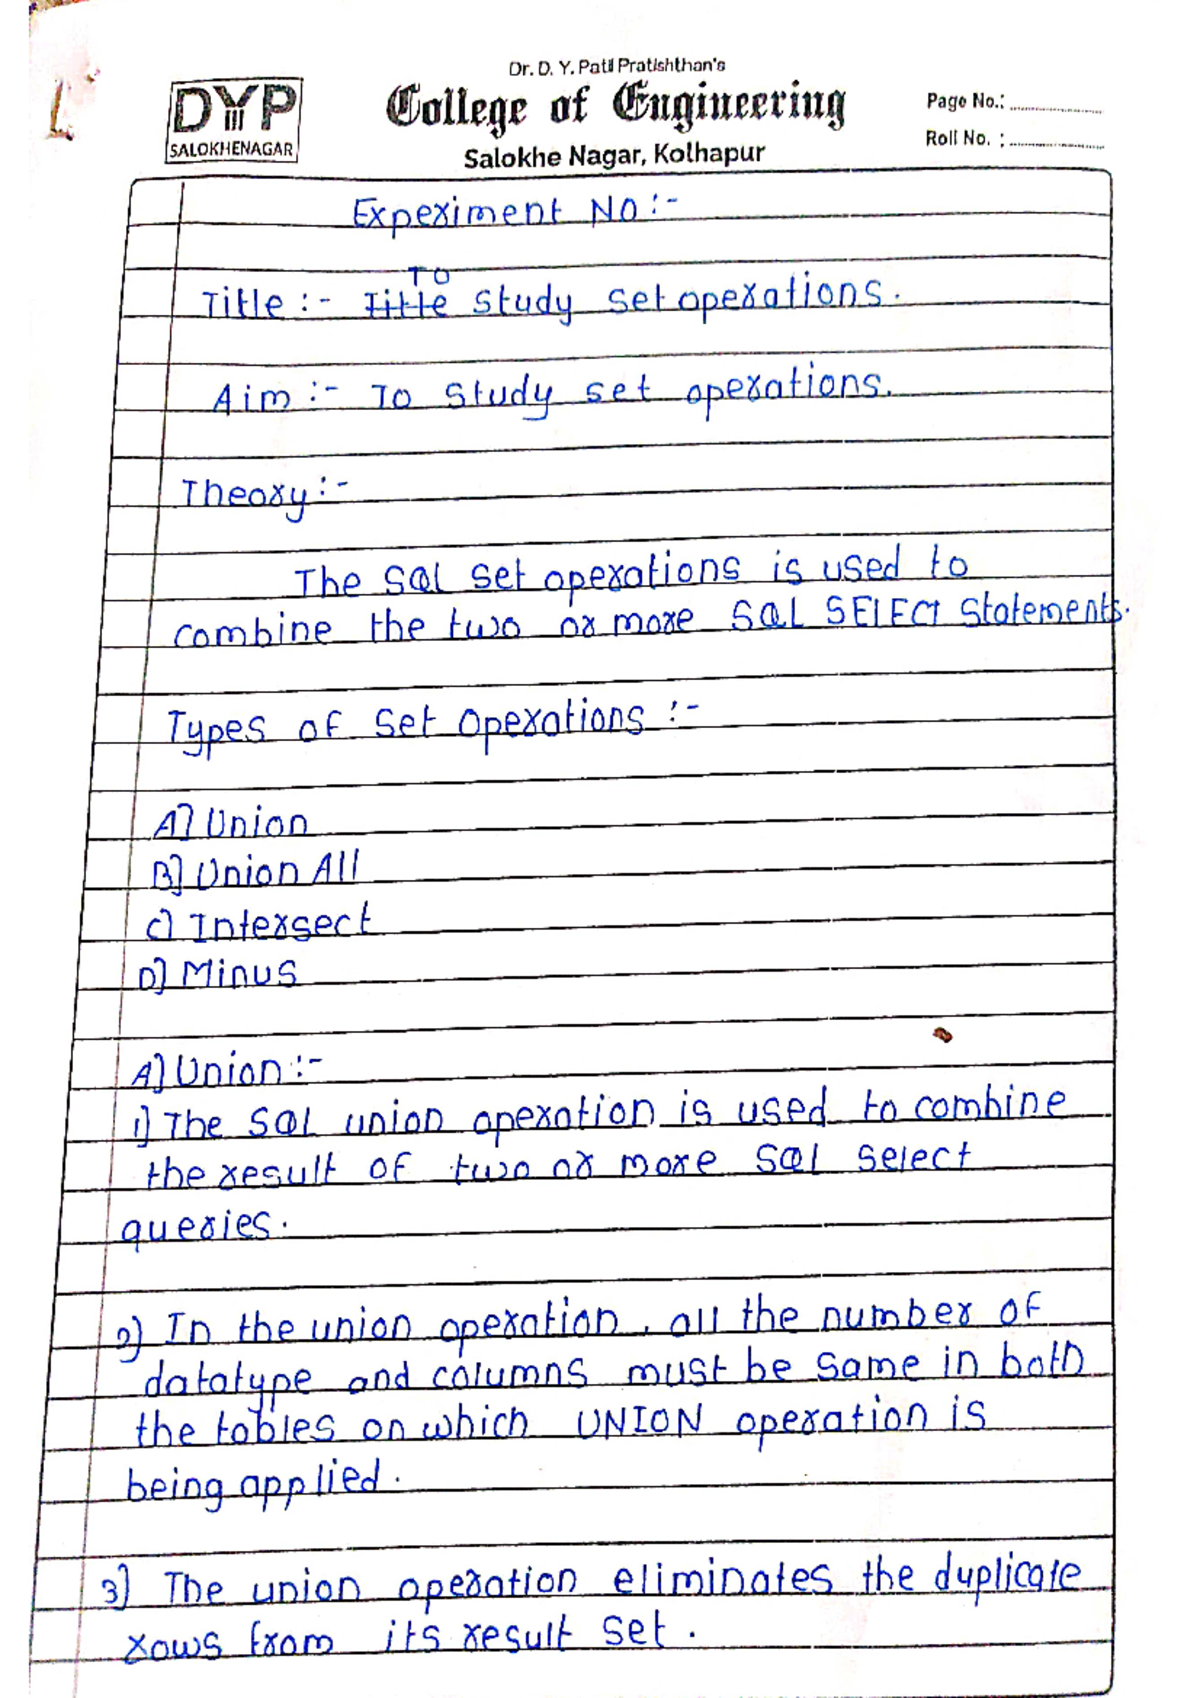 Dr. D. Y. Patil Pratishthan's
DYP
SALOKHENAGAR
College of Engineering
Salokhe Nagar, Kolhapur
Page No.:
Roll No. :
Experiment No :-
Title :- Title To Study Set operations.
Aim :- To Study set operations.
Theory :-
The SQL Set operations is used to
combine the two or more SQL SELECT Statements.
Types of Set Operations :-
A] Union
B] Union All
C] Intersect
D] Minus
A] Union :-
1] The SQL union operation is used to combine
the result of two or more SQL Select
queries.
2) In the union operation, all the number of
datatype and columns must be same in both
the tables on which UNION operation is
being applied.
3] The union operation eliminates the duplicate
rows from its result set.